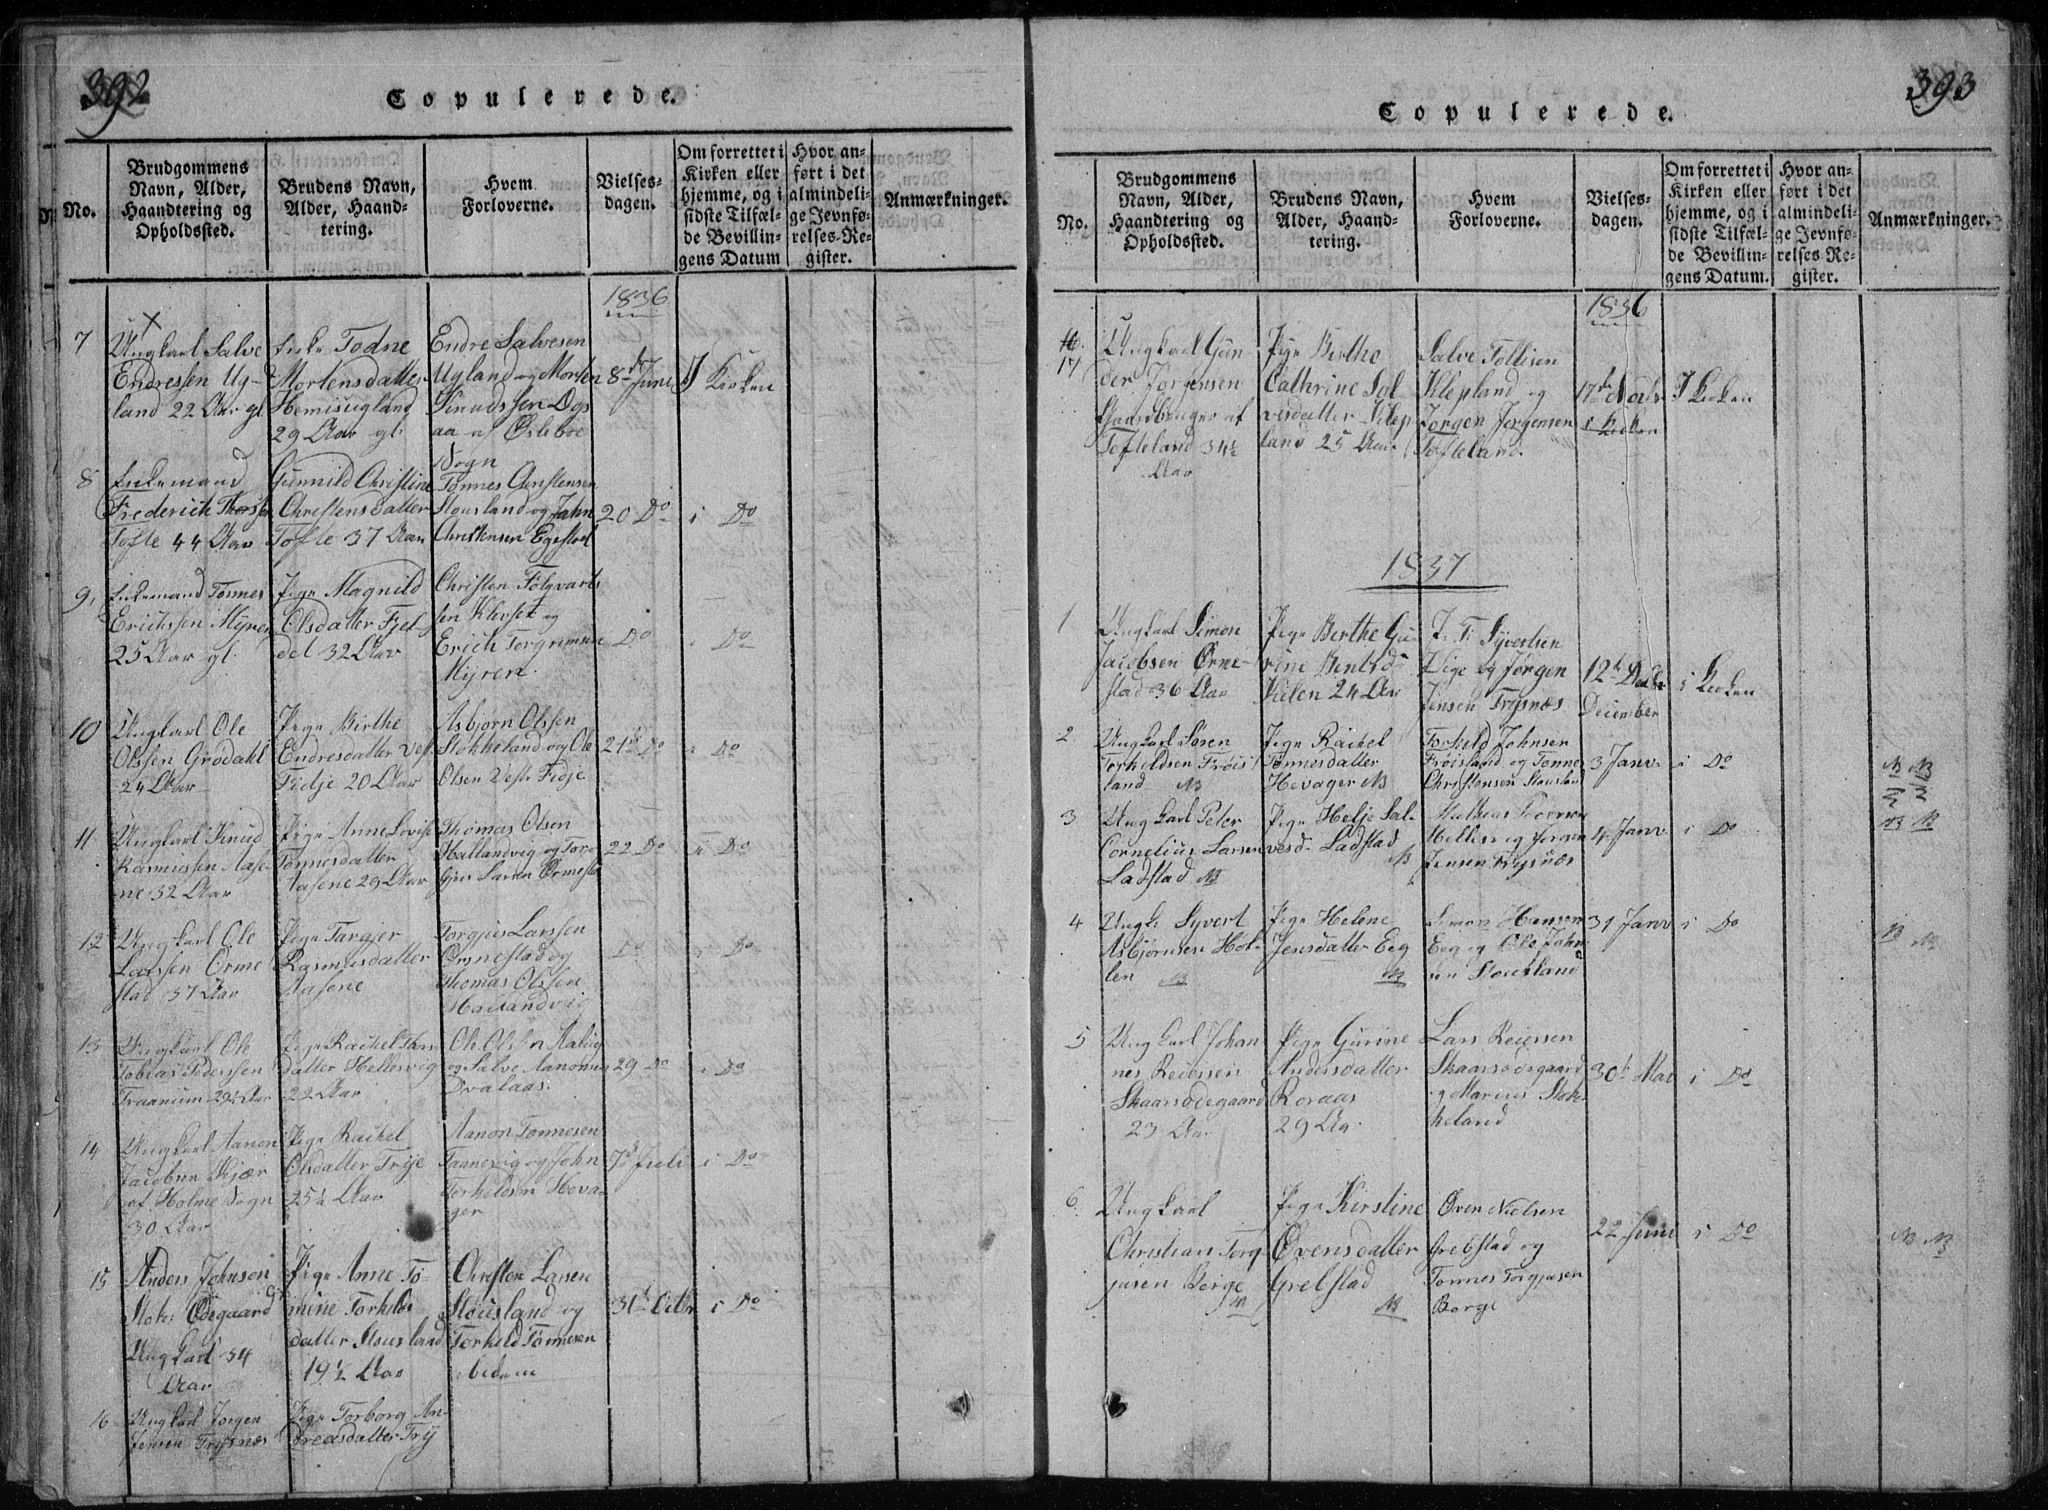 392
Copulerede.
No.
Brudgommens
Navn, Alder,
Haandtering og
Opholdssted.
Brudens Navn,
Alder, Haand-
tering.
Hvem
Forloverne.
Vielses-
dagen.
Om forrettet i
Kirken eller
hjemme, og i
sidste Tilfæl-
de Bevillin-
gens Datum
Hvor an-
ført i det
almindeli-
ge Jevnfø-
relses-Re-
gister.
Anmærkninger.
1836
7
Ungkarl Salve
Endressen Ug-
land 22 Aar gl.
Enke Todne
Mortensdatter
Hemisugland
29 Aar gl:
Endre Salvesen
Ugland og Morten
Knudssen Ogs
aa af Øsleboe
Sogn
8de Juni
I Kirken
8
Enkemand
Frederich Thorsen
Tofte 44 Aar
Gunnild Christine
Christensdatter
Tofte 37 Aar
Tønnes Christensen
Stousland og Jahn
Christensen Egestad
20 Do
i Do
9.
Enkemand Tønnes
Erichssen Myren
25 Aar gl.
Pige Magnild
Olsdatter Fjel-
del 32 Aar
Christen Folqvarts
sen Klepset og
Erich Torgrimsen
Myren.
Do
i Do
10
Ungkarl Ole
Olssen Grødahl
24 Aar
Pige Birthe
Endresdatter Vest
Fidje 20 Aar
Asbjørn Olssen
Stokkeland og Ole
Olsen Vest Fidje
21de Do
i Do
11
Ungkarl Knud
Rasmussen Aase-
ne 32 Aar
Pige Anne Lovise
Tønnesdatter
Aasene 29 Aar
Thomas Olsen
Hallandvig og Tor-
gjus Larsen Ormestad
22 Do
i Do
12
Ungkarl Ole
Larssen Orme
stad 37 Aar
Pige Targjer
Rasmusdatter
Aasene
Torgjus Larssen
Ormestad og
Thomas Olssen
Hallandvig
Do
i Do
13
Ungkarl Ole
Tobias Pederssen
Traanum 29½ Aar
Pige Rachel Thors
datter Hellesvig
22 Aar
Ole Olssen Aalvig
og Salve Aanonsen
Dvalaas
29 Do
i Do
14
Ungkarl Aanon
Jacobsen Kjær
af Holme Sogn
30 Aar
Pige Rachel
Olsdatter Trye
25½ Aar
Aanon Tønnesen
Taanevig og John
Torkeldsen Heva-
ger
7de Juli
i Do
15
Anders Johnson
Stok: Ødegaard
Ungkarl 34
Aar
Pige Anne To
mine Torkilds
datter Stousland
19½ Aar
Christen Larsen
Stousland og
Torkeld Tønnesen
ibidem
31te Octbr
i Do
16
Ungkarl Jorgen
Jensen Trysnæs
Pige Torborg An-
dreasdatter Try
393
Copulerede.
No.
Brudgommens
Navn, Alder,
Haandtering og
Opholdssted.
Brudens Navn,
Alder, Haand-
tering.
Hvem
Forloverne.
Vielses-
dagen.
Om forrettet i
Kirken eller
hjemme, og i
sidste Tilfæl-
de Bevillin-
gens Datum.
Hvor an-
ført i det
almindeli-
ge Jevnfø-
relses-Re-
gister.
Anmærkninger.
1836
17
Ungkarl Gun-
der Jørgensen
Gaardbruger af
Tofteland 34½
Aar
Pige Birthe
Cathrine Sal
vesdatter Klep
land 25 Aar
Salve Tollisen
Klepland og
Jørgen Jørgensen
Tofteland.
17de Novbr
i Kirken
I Kirken
1837
1
Ungkarl Simon
Jacobsen Orme-
stad 36 Aar
Pige Berthe Gu
rine Bentsd-
Kilen 24 Aar
J. T. Syvertsen
Lige og Jørgen
Jensen Trysnæs
12te Decbr
December
i Kirken
2.
Ungkarl Søren
Torkeldsen Frøis
land NB
Pige Rachel
Tønnesdatter
Hevager NB
Torkeld Johnsen
Frøisland og Tønnes
Christensen Stousland
3 Janv.
i Do
NB NB
3
Ungkarl Peter
Cornelius Larsen
Ladstad NB
Pige Helje Sal-
vesd. Ladstad
NB
Mathias
og Jørgen
Jensen Trysnæs
4 Janv
i Do
NB NB
4
Ungk: Syvert
Asbjørnsen Hol-
len NB
Pige Helene
Jensdatter Eeg
NB
Simon Hansen
Eeg og Ole John
sen Stousland
31 Janv
i Do
NB NB
5
Ungkarl Johan
nes Reiersen
Skaarsødegaard
23 Aar
Pige Gurine
Andersdatter
Roraas
29 Aa.
Lars Reiersen
Skaarsødegaard
og Marius Stok-
keland
30te Mai
i Do
6.
Ungkarl
Christian Torg
jusen Berge
NB
Pige Kirstine
Ovensdatter
Grebstad
NB
Oven Nielsen
Grebstad og
Tonnes Torgjusen
Berge
22 Juni
i Do
NB NB